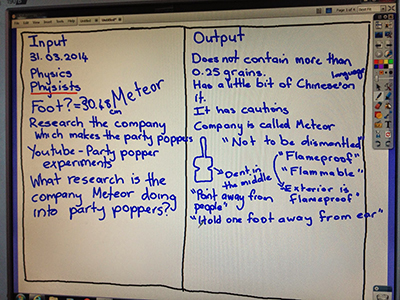 Input
31.03.2014
Physics
Physists
Foot?=30.48cm Meteor
Research the company
which makes the party poppers
Youtube-Party popper
experiments
What research is the
company Meteor doing
into party poppers?
Output
Does not contain more than
0.25 grains.
Has a little bit of Chinese language on
it.
It has cautions
Company is called Meteor
"Not to be dismentled"
"Flameproof"
"Flammable"
Exterior is
flameproof"
Dent in
the middle
"Point away from
people"
"Hold one foot away from ear"